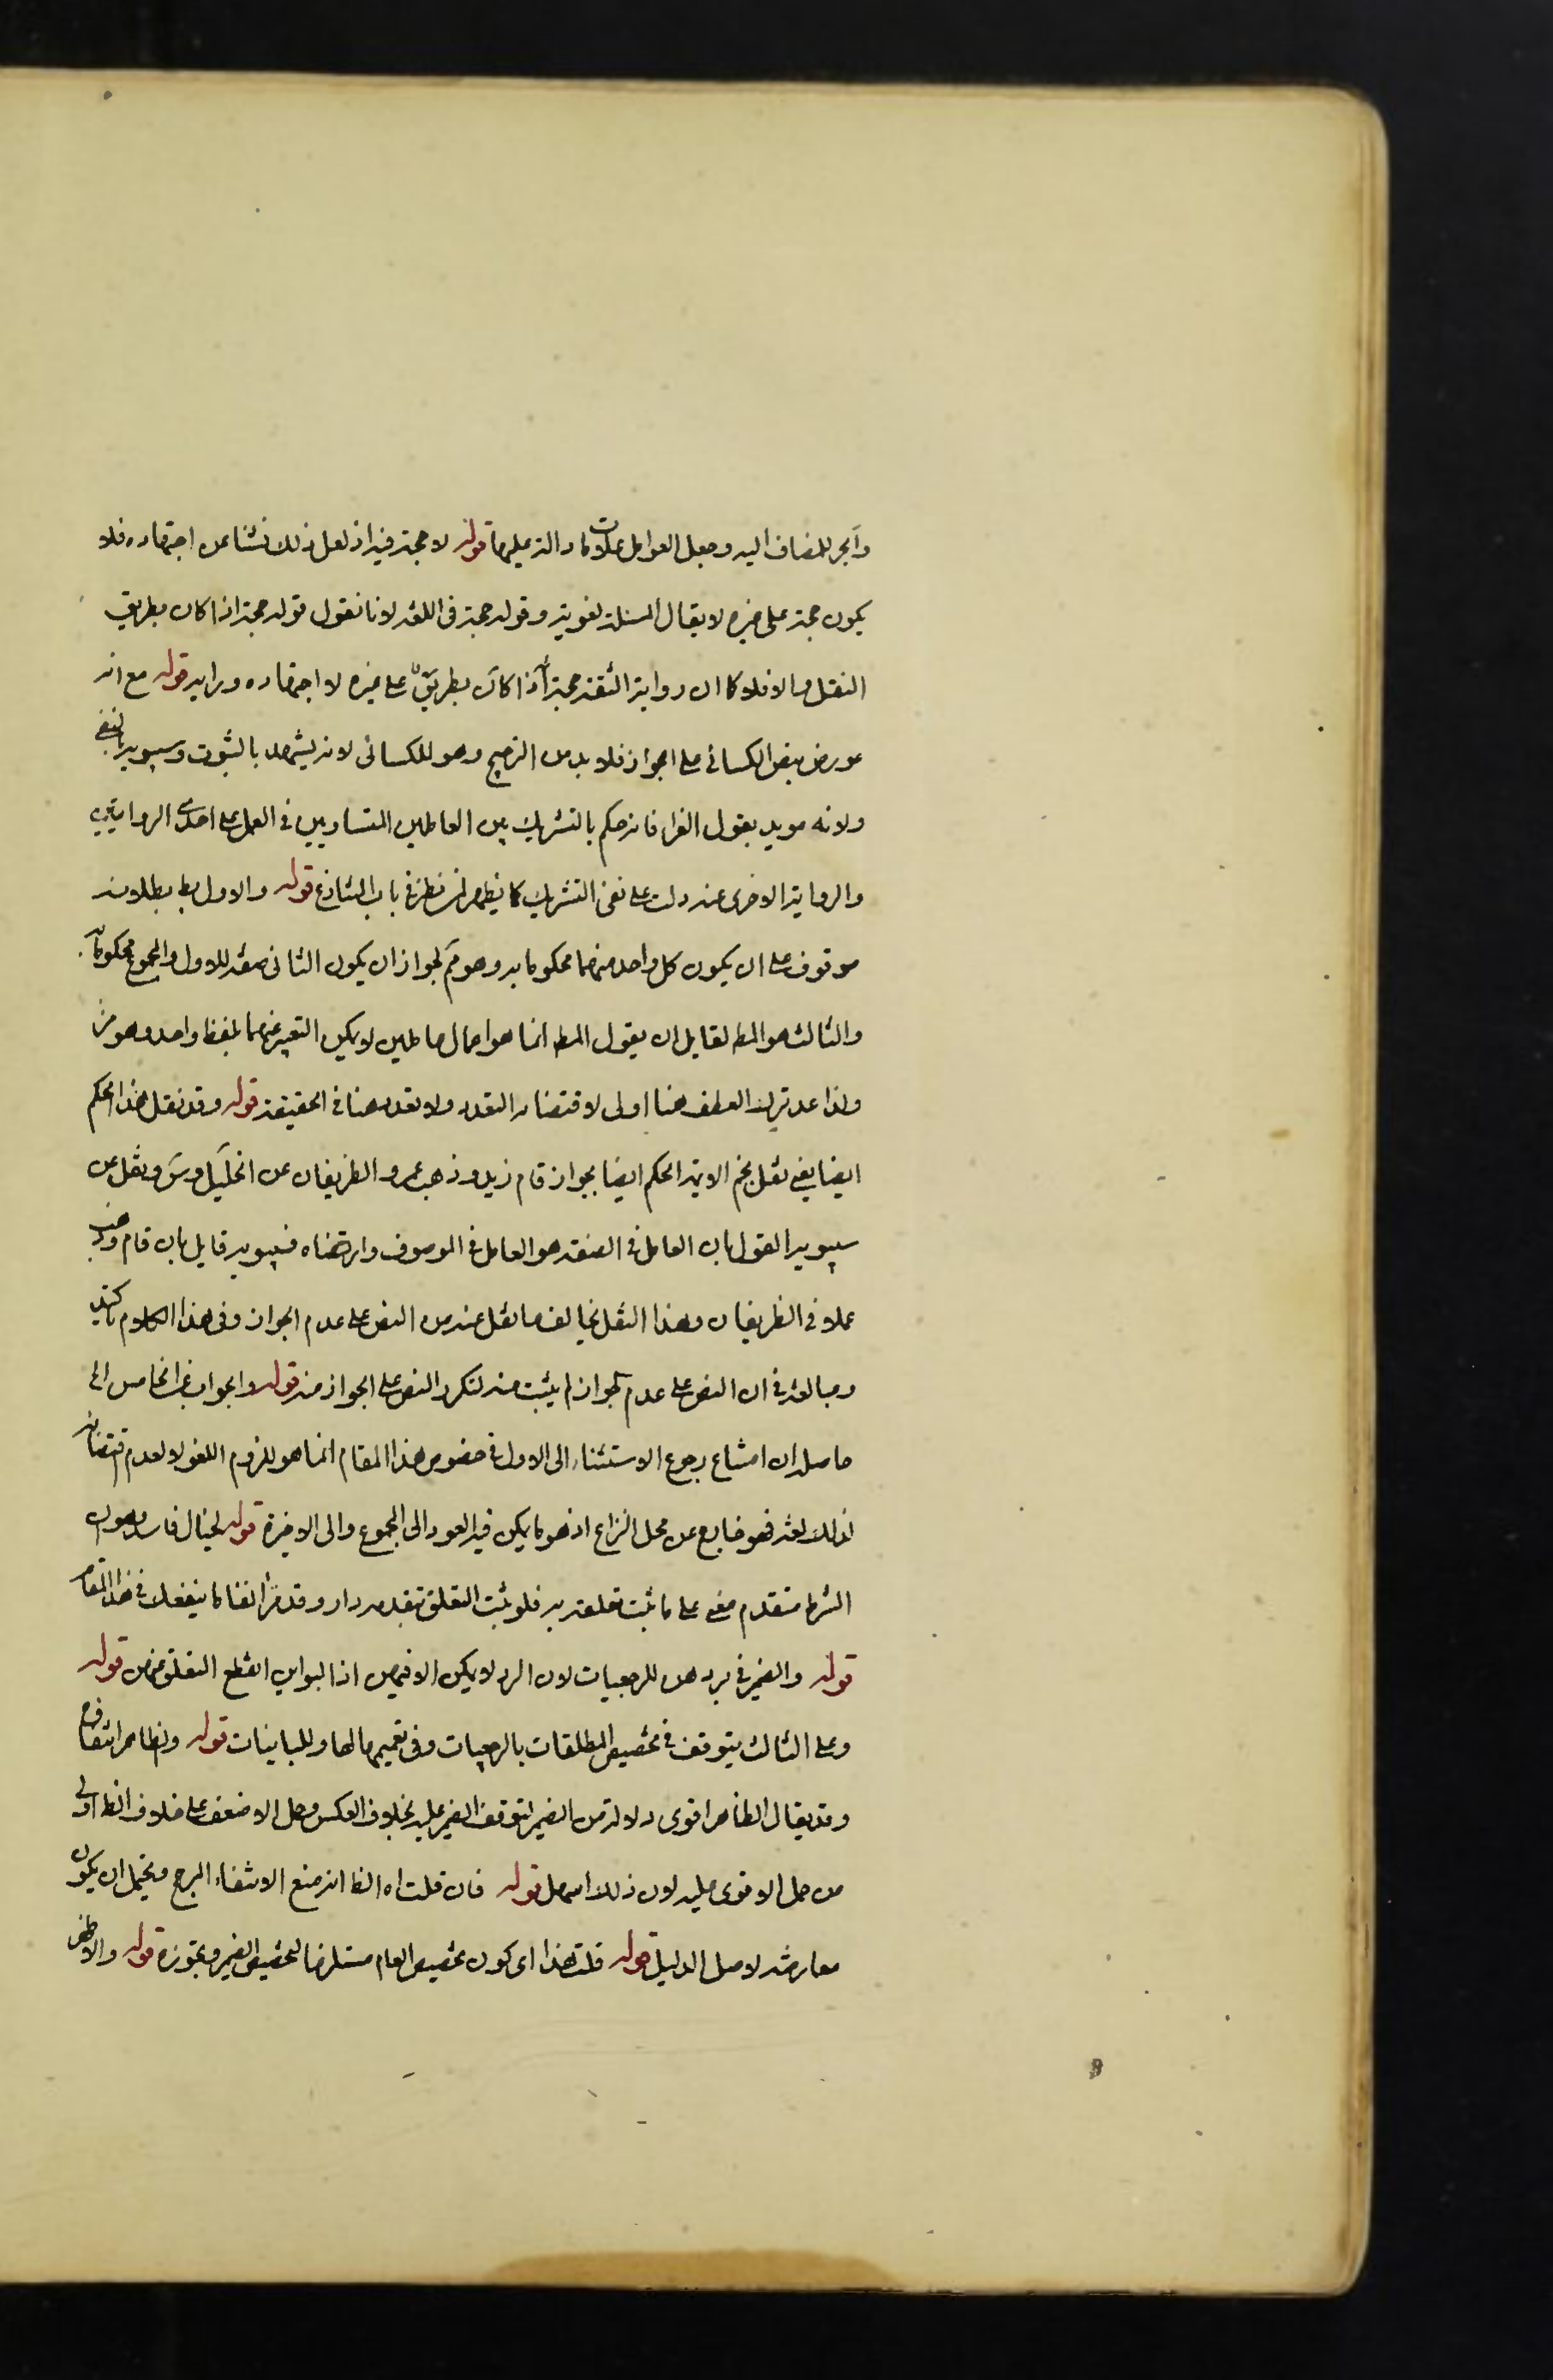 والجر للمضاف اليه وجعل العوامل علامات دالة عليها قوله لا حجة فيه اذ لعل ذلك نشئا عن اجتهاده فلا
يكون حجة على غيره لا يقال المسئلة لغوية وقوله حجة في اللغة لانا نقول قوله حجة اذا كان بطريق
النقل والا فلا كما ان رواية الثقة حجة اذا كانت بطريق على غيره لا اجتهاده ورايه قوله مع انه
عورض بنص الكسائي على الجواز فلا بد من الترجيح وهو للكسائي لانه يشهد بالثبوت وسيبويه بالنفي
ولانه مويد بقول الفرا فانه حكم بالتشريك بين العاملين المتساويين في العمل على احدى الروايتين
والرواية الاخرى عنه دلت على نفى التشريك كما يظهر لمن نظر في باب التنازع قوله والاول بط بطلانه
موقوف على ان يكون كل واحد منهما محكوما به وهو مم لجواز ان يكون الثاني صفة للاول والمجموع محكوما به
والثالث هو المط لقايل ان يقول المط انما هو اعمال عاملين لا يمكن التعبير عنهما بلفظ واحد وهو من
ولذا عد ترك العطف هنا اولى لاقتضائه التعدد ولا تعدد هنا في الحقيقة قوله وقد نقل هذا الحكم
ايضا يعني نقل نجم الائمة الحكم ايضا بجواز قام زيد وذهب عمرو الظريفان عن الخليل وس ونقل عن
سيبويه القول بان العامل في الصفة هو العامل في الموصوف وارتضاه فسيبويه قايل بان قام وذهب
عملا في الظريفان وهذا النقل يخالف ما نقل عنه من النص على عدم الجواز وفي هذا الكلام تاكيد
ومبالغة في ان النص على عدم الجواز لم يثبت منه لتكرر النص على الجواز منه قوله والجواب عن الخامس الخ
حاصله ان امتناع رجوع الاستثناء الى الاول في خصوص هذا المقام انما هو للزوم اللغو لا لعدم اقتضائه
لذلك لغة فهو خارج عن محل النزاع اذ هو ما يمكن فيه العود الى المجموع والى الاخيرة قوله لخيال فاسد وهو ان
الشرط متقدم معنى على ما ثبت تعلقه به فلو ثبت التعلق بتقدمه دار وقد مر انفا ما ينفعك في هذا المقام
قوله والضمير في بردهن للرجعيات لان الرد لا يمكن الا فيهن اذ البواين انقطع التعلق عنهن قوله
وعلى الثالث يتوقف في تخصيص المطلقات بالرجعيات وفي تعميمها لها وللباينات قوله والظاهر انتفاؤه
وقد يقال الظاهر اقوى دلالة من الضمير لتوقف الضمير عليه بخلاف العكس وحمل الاضعف على خلاف الظ اولى
من حمل الاقوى عليه لان ذلك اسهل قوله فان قلت اه الظ انه منع الانتفاء المرجح ويحتمل ان يكون
معارضة لاصل الدليل قوله قلت هذا اى كون تخصيص العام مستلزما لتخصيص الضمير وتجوزه قوله والاظهر